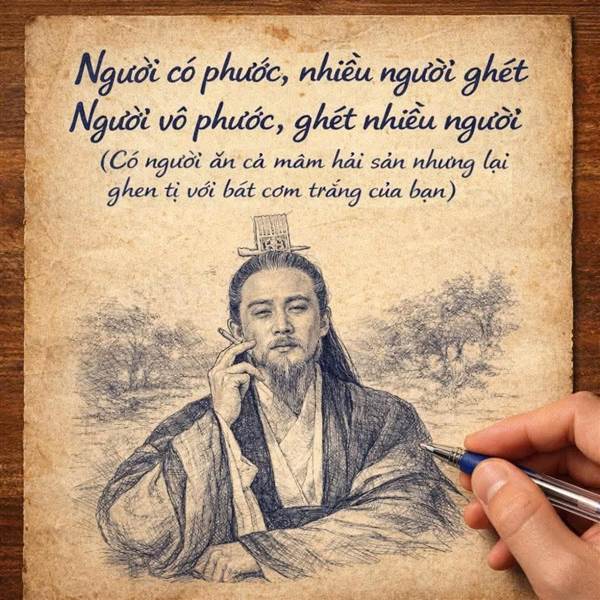 Người có phước, nhiều người ghét
Người vô phước, ghét nhiều người
(Có người ăn cả mâm hải sản nhưng lại
ghen tị với bát cơm trắng của bạn)